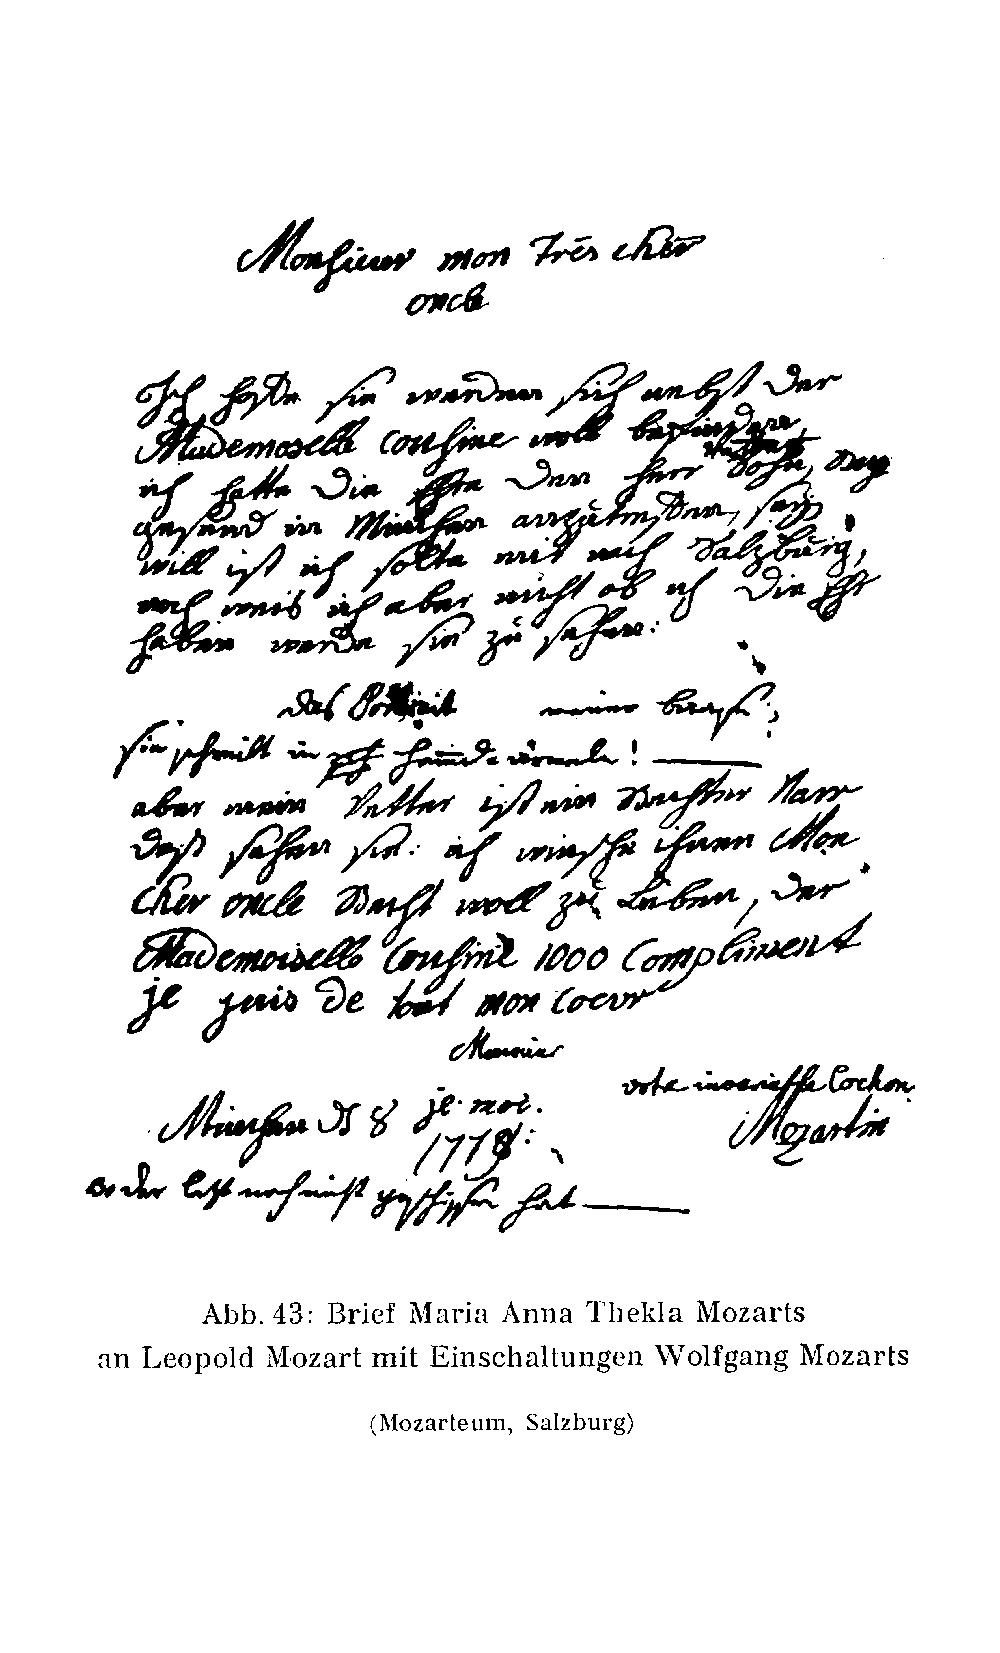 Monsieur mon Tres cher
oncle
Ich hoffe sie werden sich nebst der
Mademoselle cousine woll befinden,
ich hatte die Ehre den herr Sohn,
gesund in München anzutreffen, sein
will ist ich solte mit nach Salzburg,
noch weis ich aber nicht ob ich die Ehr
haben werde sie zu sehen:
das Portrait meiner baasse;
sie schreibt in hemmed-ärmeln!
aber mein Vetter ist ein Rechter Narr
deß sehen sie: ich winsche ihnen Mon
cher oncle Recht woll zu Leben, der
Mademoiselle Cousine 1000 Compliment
je suis de tout mon Coeur
Monsieur
München 8
je. moi.
1779:
vote inveriable Cochon
Mozartin
wo der letste noch nicht geschissen hat
Abb. 43: Brief Maria Anna Thekla Mozarts
an Leopold Mozart mit Einschaltungen Wolfgang Mozarts
(Mozarteum, Salzburg)